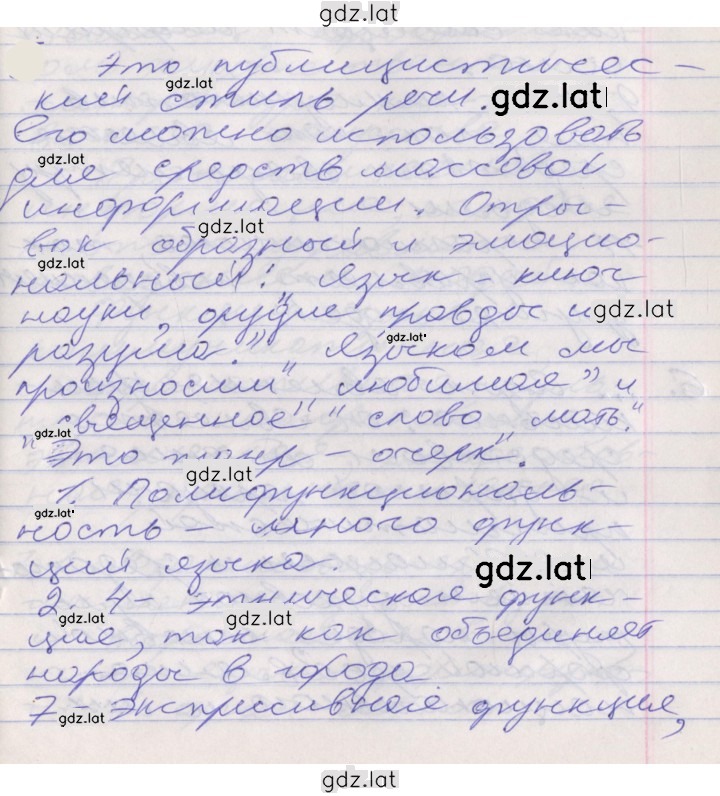 gdz.lat
Это публицистичес-
gdz.lat
кий стиль речи.
gdz.lat
Его можно использовать
gdz.lat
для средств массовой
информации. Отры-
gdz.lat
вок образный и эмоцио-
gdz.lat
нальный: "Язык - ключ
науки, орудие правды и
gdz.lat
разума." Языком мы
gdz.lat
произносим "любимая" и
"священное" "слово мать."
gdz.lat
"Это жанр - очерк".
gdz.lat
1. Полифункциональ-
gdz.lat
ность - много функ-
ций языка.
gdz.lat
2. 4 - этническая функ-
gdz.lat
gdz.lat
ция, так как объединяет
народы в города
7 - экспрессивная функция,
gdz.lat
gdz.lat